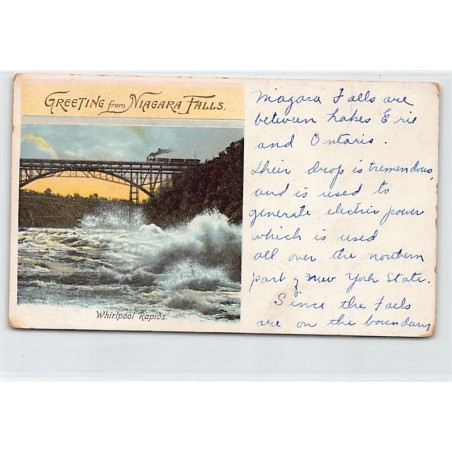 GREETING from NIAGARA FALLS.
Whirlpool Rapids.
Niagara Falls are
between Lakes Erie
and Ontario.
Their drop is tremendous,
and is used to
generate electric power
which is used
all over the northern
part of New York State.
Since the Falls
are on the boundary